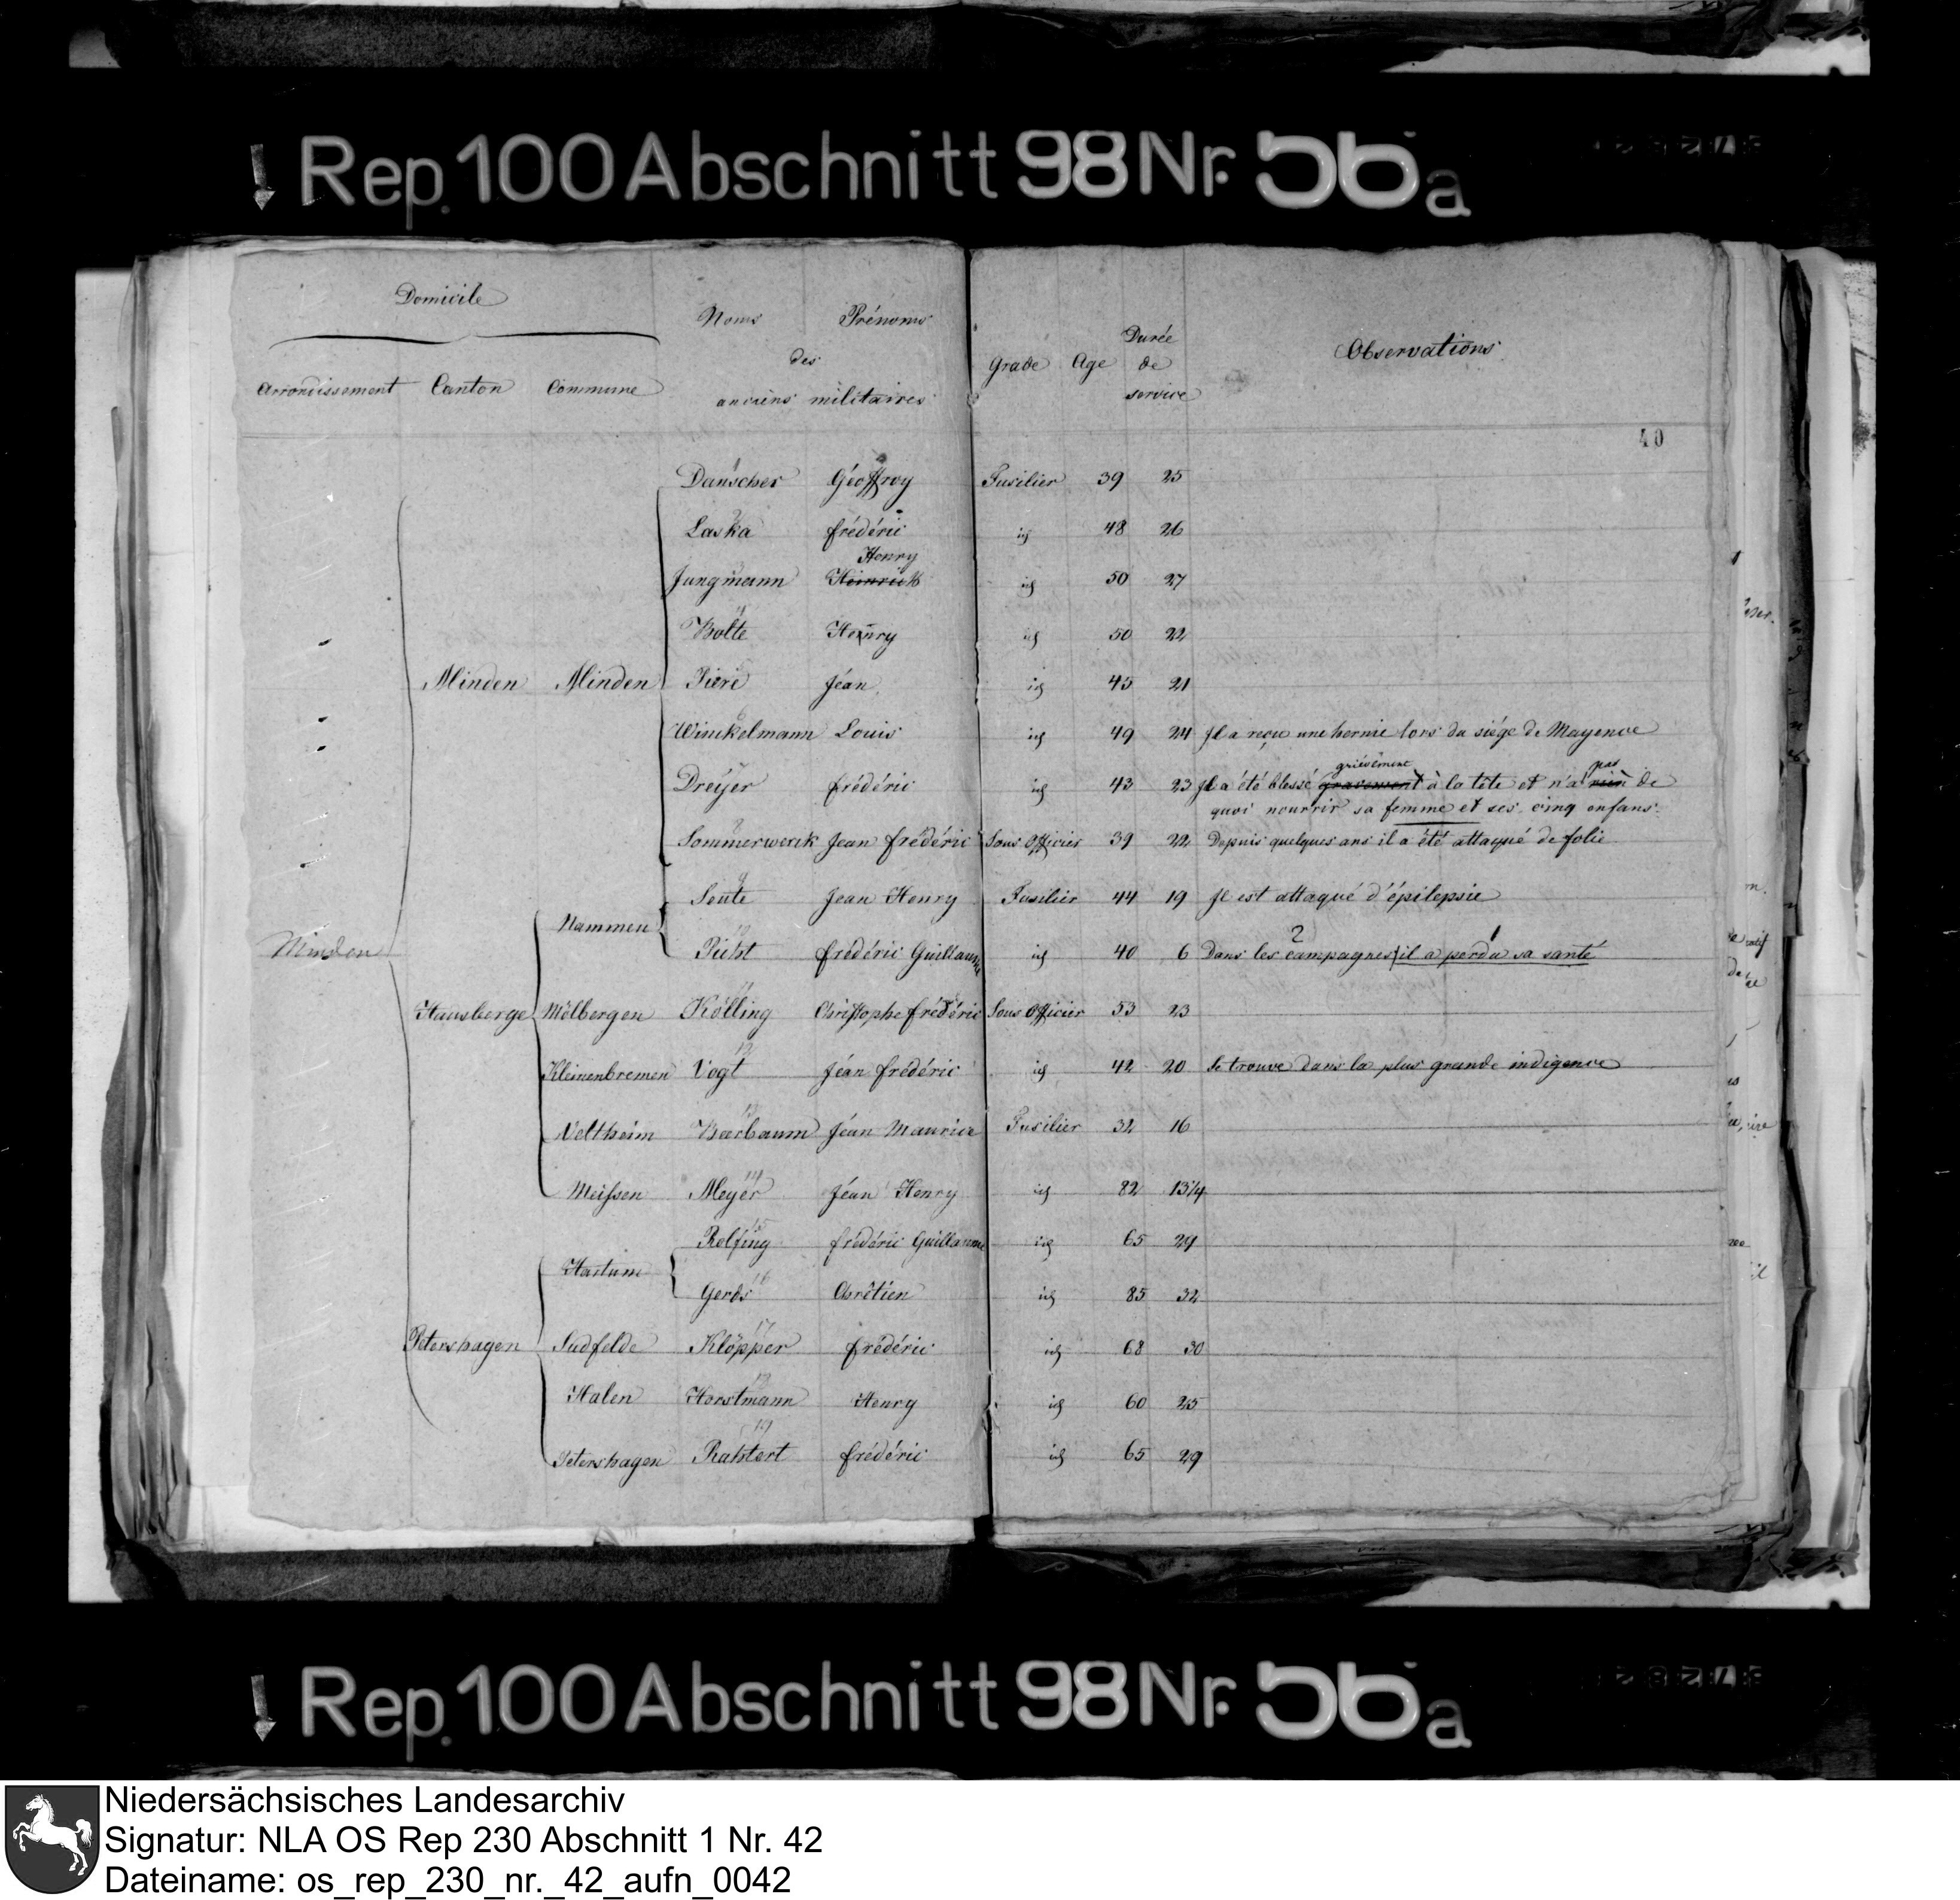 Rep. 100 Abschnitt 98 Nr. 56a
Domicile
Noms Prénoms
des
anciens militaires
Arrondissement Canton Commune
Grade Age Durée de service
Observations
40
Minden
Minden Minden
1 Dauscher Géoffroy Fusilier 39 25
Laska frédéric id 48 26
Henry
Jungmann Heinrich id 50 27
4 Bolte Henry id 50 22
Jéan id 45 21
6 Winckelmann Louis id 49 24 Il a reçu une hernie lors du siége de Mayence
grièvement pas
Dreÿer frédéric id 43 23 Il a été blessé gravement à la tête et n'a rien de
quoi nourrir sa femme et ses cinq enfans.
Sommerwerck Jean frédéric Sous Officier 39 22 Depuis quelques ans il a été attaqué de folie
Hausberge
Nammen 9 Seute Jean Henry Fusilier 44 19 Il est attaqué d'épilepsie
2 1
10 frédéric Guillaume id 40 6 Dans les campagnes il a perdu sa santé
Mölbergen 11 Kölling Christophe frédéric Sous Officier 53 23
Kleinenbremen 12 Vogt Jéan frédéric id 42 20 Se trouve dans la plus grande indigence
Veltheim 13 Jéan Maurice Fusilier 32 16
Meissen 14 Meyer Jéan Henry id 82 13 1/4
Petershagen
Hartum 15 Rolfing frédéric Guillaume id 65 29
16 Gerds Chrêtien id 85 32
Sudfelde 17 Klöpper frédéric id 68 30
Halen 18 Horstmann Henry id 60 25
Petershagen 19 Rahtert frédéric id 65 29
Rep. 100 Abschnitt 98 Nr. 56a
Niedersächsisches Landesarchiv
Signatur: NLA OS Rep 230 Abschnitt 1 Nr. 42
Dateiname: os_rep_230_nr._42_aufn_0042